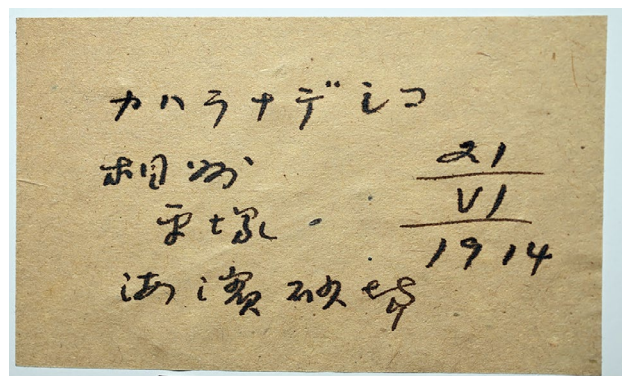 カハラナデシコ
相州
平塚
海濱砂地
21
VI
1914